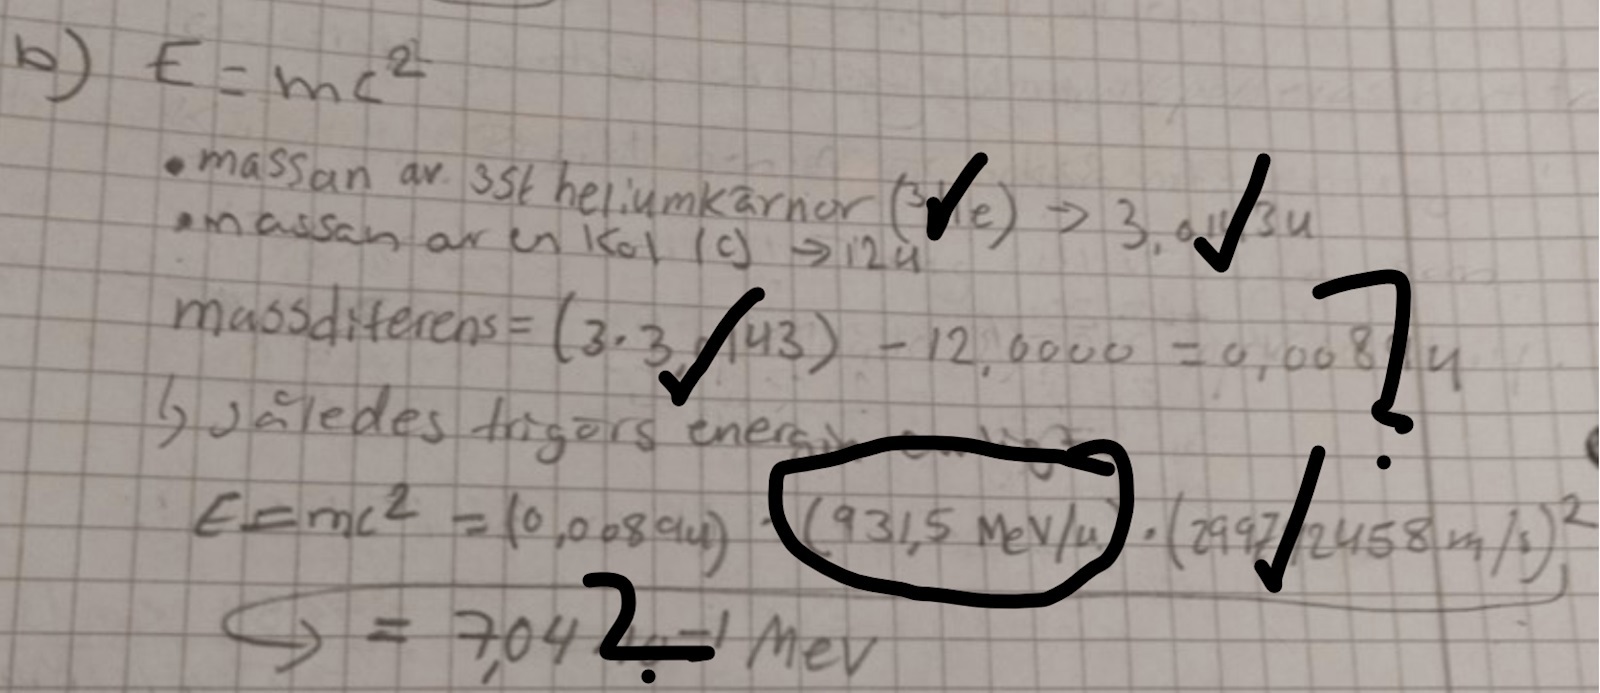 b) E = mc²
• massan av 3st heliumkärnor (³He) → 3,0143u
• massan av en Kol (c) → 12u
massdiferens = (3·3,0143) - 12,0000 = 0,0089u
↳ således frigörs energin enligt
E = mc² = (0,0089u) · (931,5 MeV/u) · (299792458 m/s)²
↪ = 7,04 -1 Mev